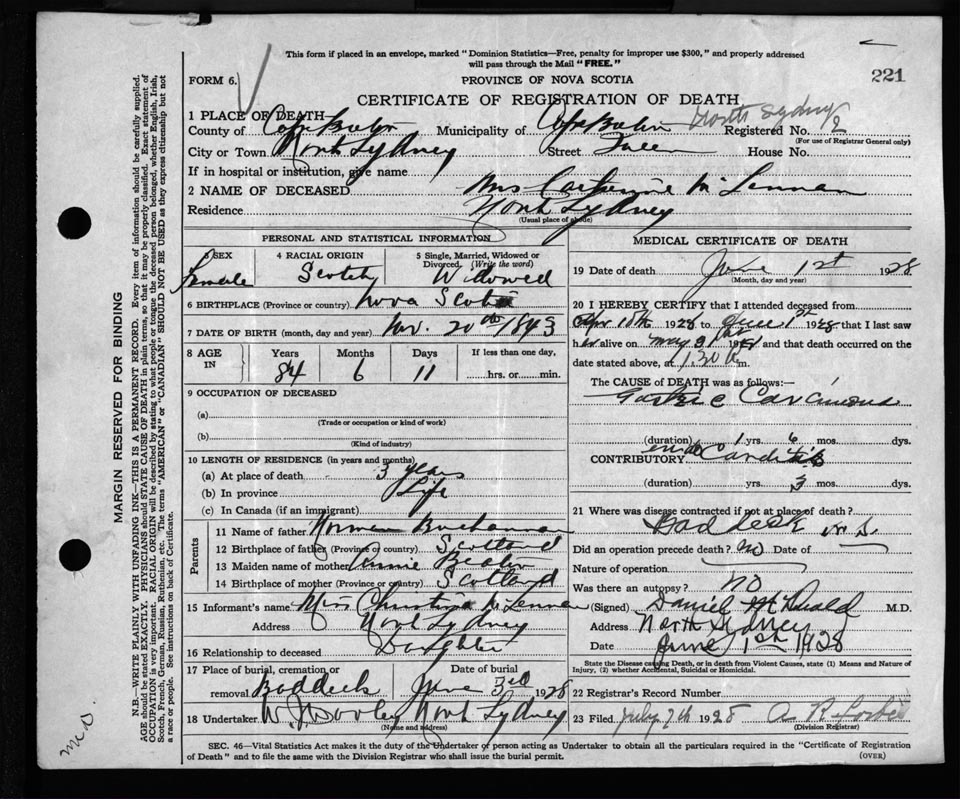 This form if placed in an envelope, marked "Dominion Statistics—Free, penalty for improper use $300," and properly addressed
will pass through the Mail "FREE."
FORM 6.
PROVINCE OF NOVA SCOTIA
221
CERTIFICATE OF REGISTRATION OF DEATH
North Sydney
1 PLACE OF DEATH
County of Cape Breton Municipality of Cape Breton Registered No. 2
(For use of Registrar General only)
City or Town North Sydney Street House No.
If in hospital or institution, give name
2 NAME OF DECEASED Mrs Catherine McLennan
Residence North Sydney
(Usual place of abode)
PERSONAL AND STATISTICAL INFORMATION
3 SEX
Female
4 RACIAL ORIGIN
Scotch
5 Single, Married, Widowed or
Divorced. (Write the word)
Widowed
6 BIRTHPLACE (Province or country) Nova Scotia
7 DATE OF BIRTH (month, day and year) Nov. 20th 1843
8 AGE IN
Years Months Days If less than one day,
84 6 11 hrs. or min.
9 OCCUPATION OF DECEASED
(a)
(Trade or occupation or kind of work)
(b)
(Kind of industry)
10 LENGTH OF RESIDENCE (in years and months)
(a) At place of death 3 years
(b) In province Life
(c) In Canada (if an immigrant)
Parents
11 Name of father Norman Buchannan
12 Birthplace of father (Province or country) Scotland
13 Maiden name of mother Annie
14 Birthplace of mother (Province or country) Scotland
15 Informant's name Miss Christina McLennan
Address North Sydney
16 Relationship to deceased Daughter
17 Place of burial, cremation or
removal Baddeck
Date of burial
June 3rd 1928
18 Undertaker W. J. Dooley North Sydney
(Name and address)
MEDICAL CERTIFICATE OF DEATH
19 Date of death June 1st 1928
(Month, day and year)
20 I HEREBY CERTIFY that I attended deceased from
Apr 10th 1928 to June 1st 1928 that I last saw
her alive on May 31 1928 and that death occurred on the
date stated above, at 1.30 a m.
The CAUSE OF DEATH was as follows:—
Gastric Carcinoma
(duration) 1 yrs. 6 mos. dys.
CONTRIBUTORY endo Carditis
(duration) 3 yrs. mos. dys.
21 Where was disease contracted if not at place of death?
Baddeck N.S.
Did an operation precede death? no Date of
Nature of operation
Was there an autopsy? no
(Signed) Daniel McDonald M.D.
Address North Sydney
Date June 1st 1928
State the Disease causing Death, or in death from Violent Causes, state (1) Means and Nature of
Injury, (2) whether Accidental, Suicidal or Homicidal.
22 Registrar's Record Number
23 Filed July 7th 1928 A R
(Division Registrar)
SEC. 46—Vital Statistics Act makes it the duty of the Undertaker or person acting as Undertaker to obtain all the particulars required in the "Certificate of Registration
of Death" and to file the same with the Division Registrar who shall issue the burial permit.
(OVER)
MARGIN RESERVED FOR BINDING
N.B.—WRITE PLAINLY WITH UNFADING INK—THIS IS A PERMANENT RECORD. Every item of information should be carefully supplied.
AGE should be stated EXACTLY. PHYSICIANS should STATE CAUSE OF DEATH in plain terms, so that it may be properly classified. Exact statement of
OCCUPATION is very important. RACIAL ORIGIN will be described by stating to what people or tongue the deceased person belonged, whether English, Irish,
Scotch, French, German, Russian, Ruthenian, etc. The terms "AMERICAN" or "CANADIAN" SHOULD NOT BE USED as they express citizenship but not
a race or people. See instructions on back of Certificate.